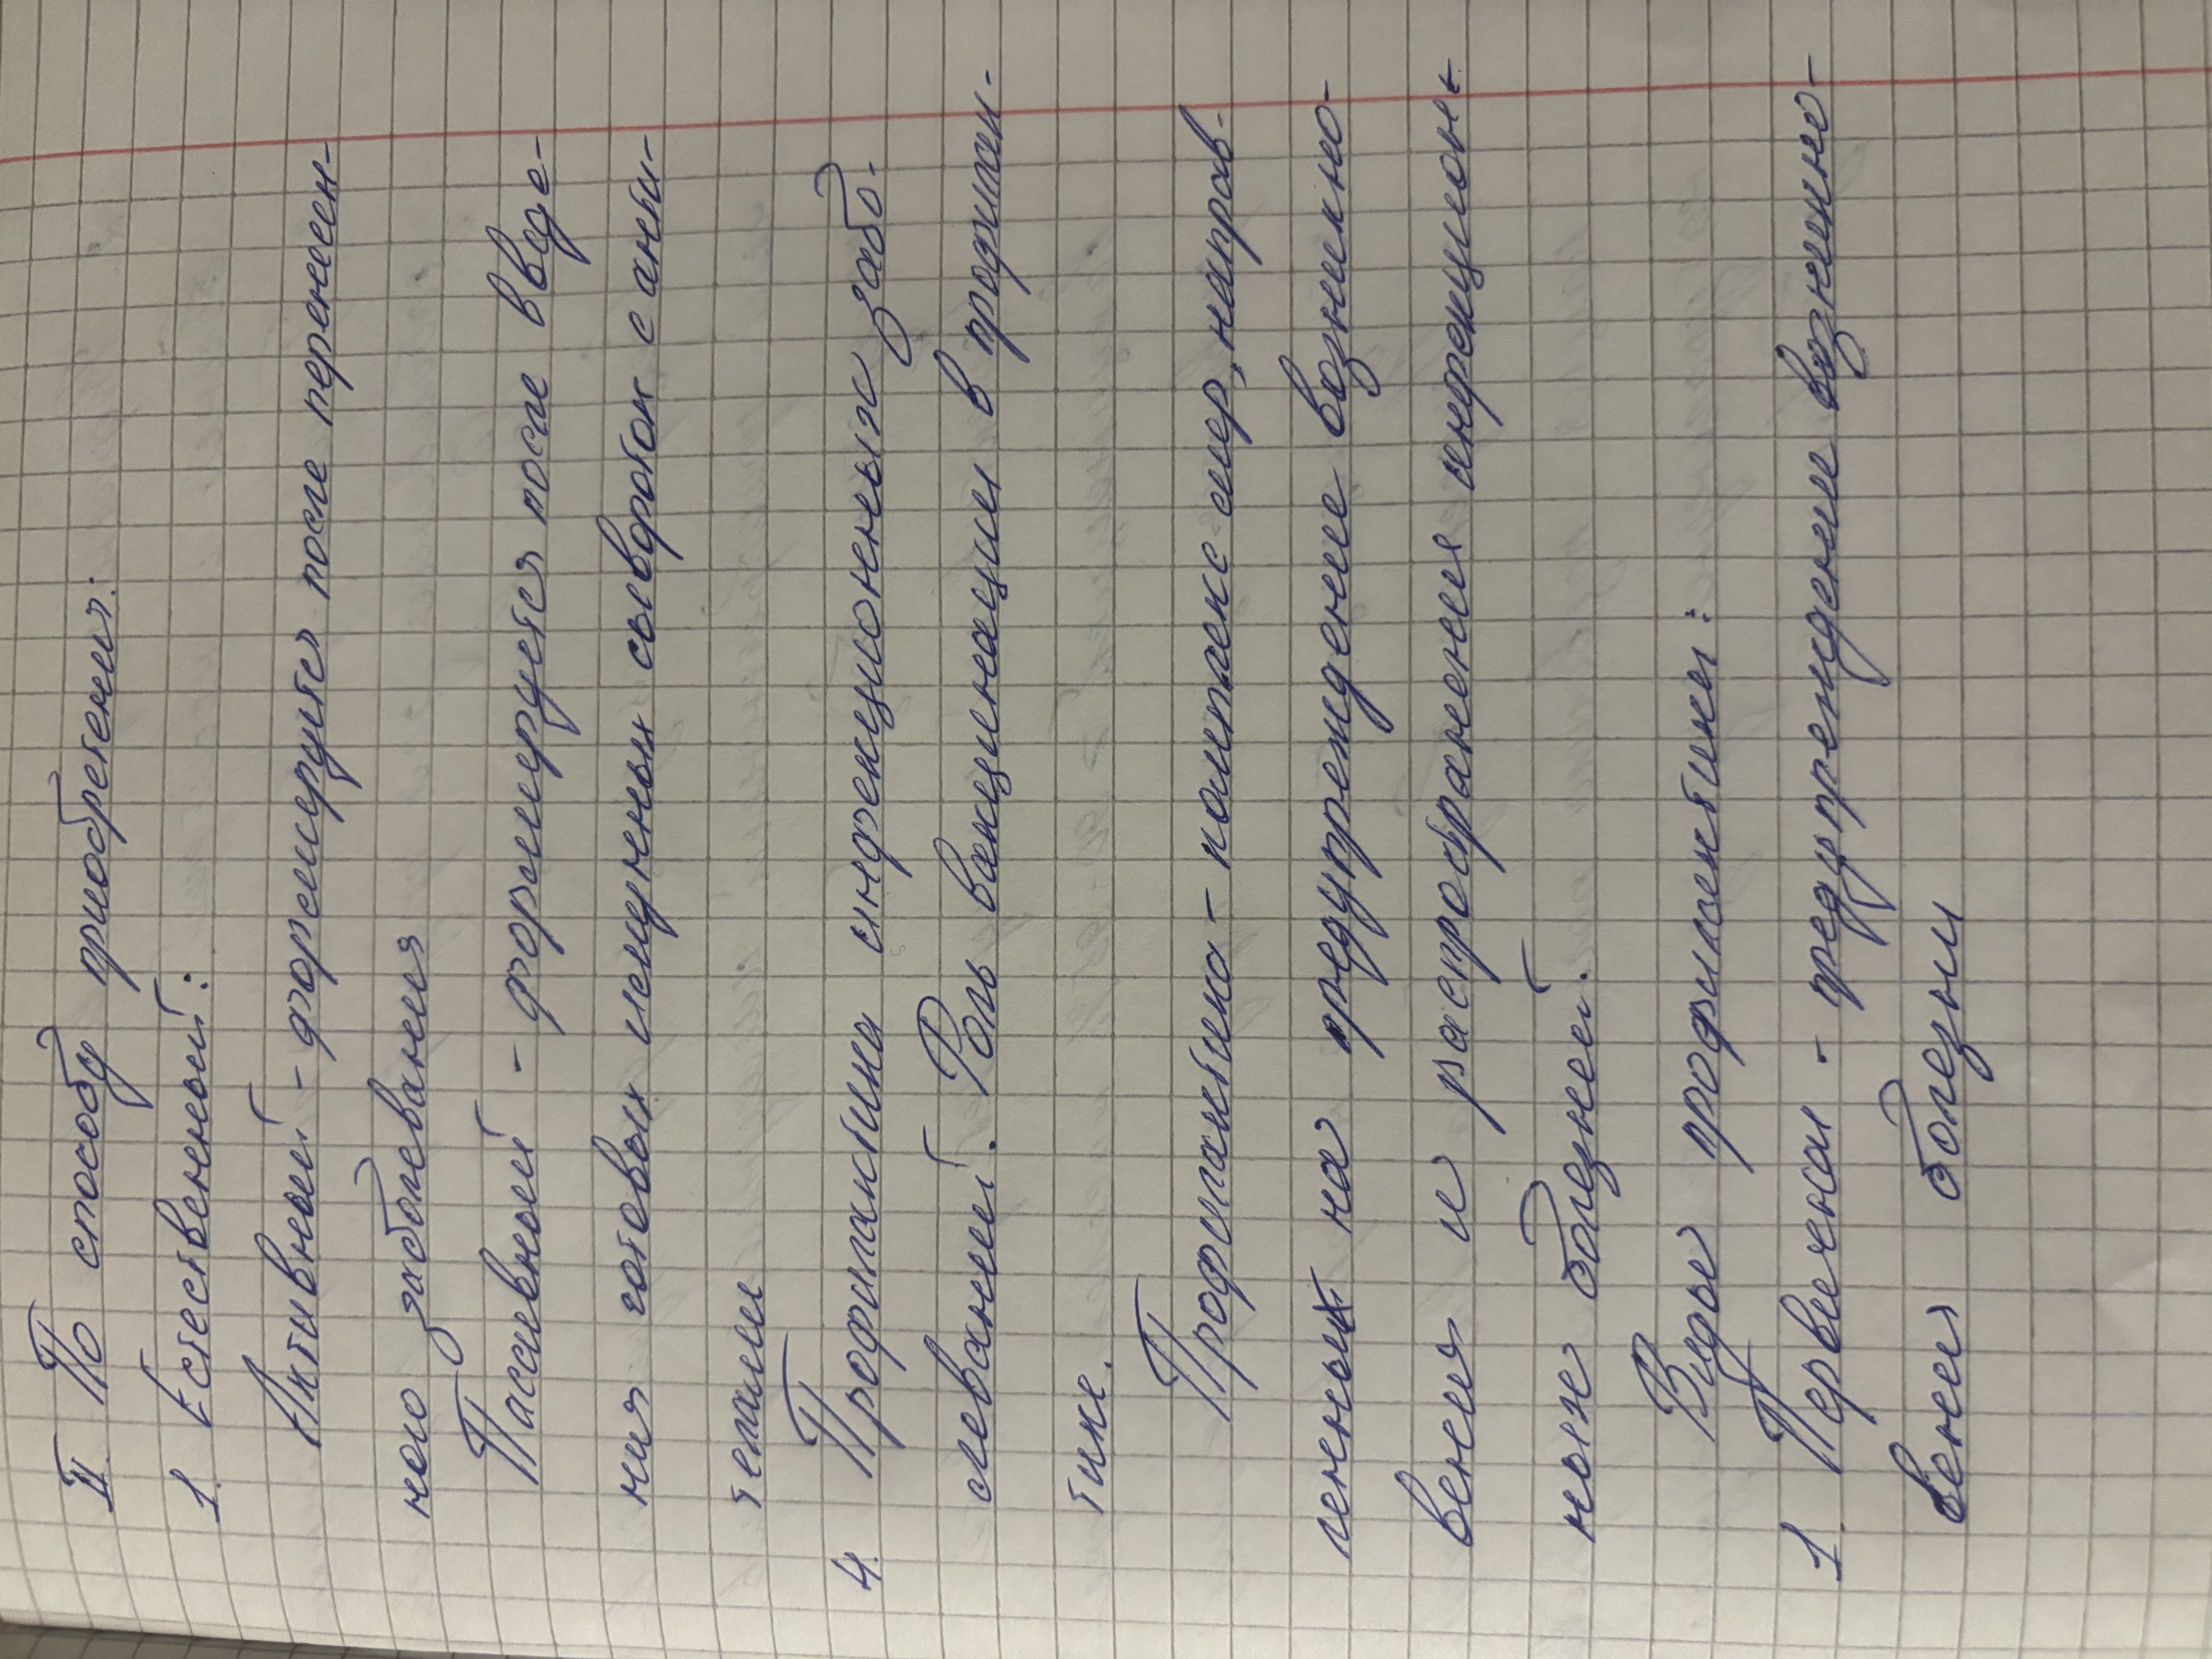 II. По способу приобретения:
1. Естественный:
Активный - формируется после перенесен-
ного заболевания
Пассивный - формируется после введе-
ния готовых иммунных сывороток с анти-
телами
4. Профилактика инфекционных забо-
леваний. Роль вакцинации в профилак-
тике.
Профилактика - комплекс мер, направ-
ленных на предупреждение возникно-
вения и распространения инфекцион-
ных болезней.
Виды профилактики:
1. Первичная - предупреждение возникно-
вения болезни